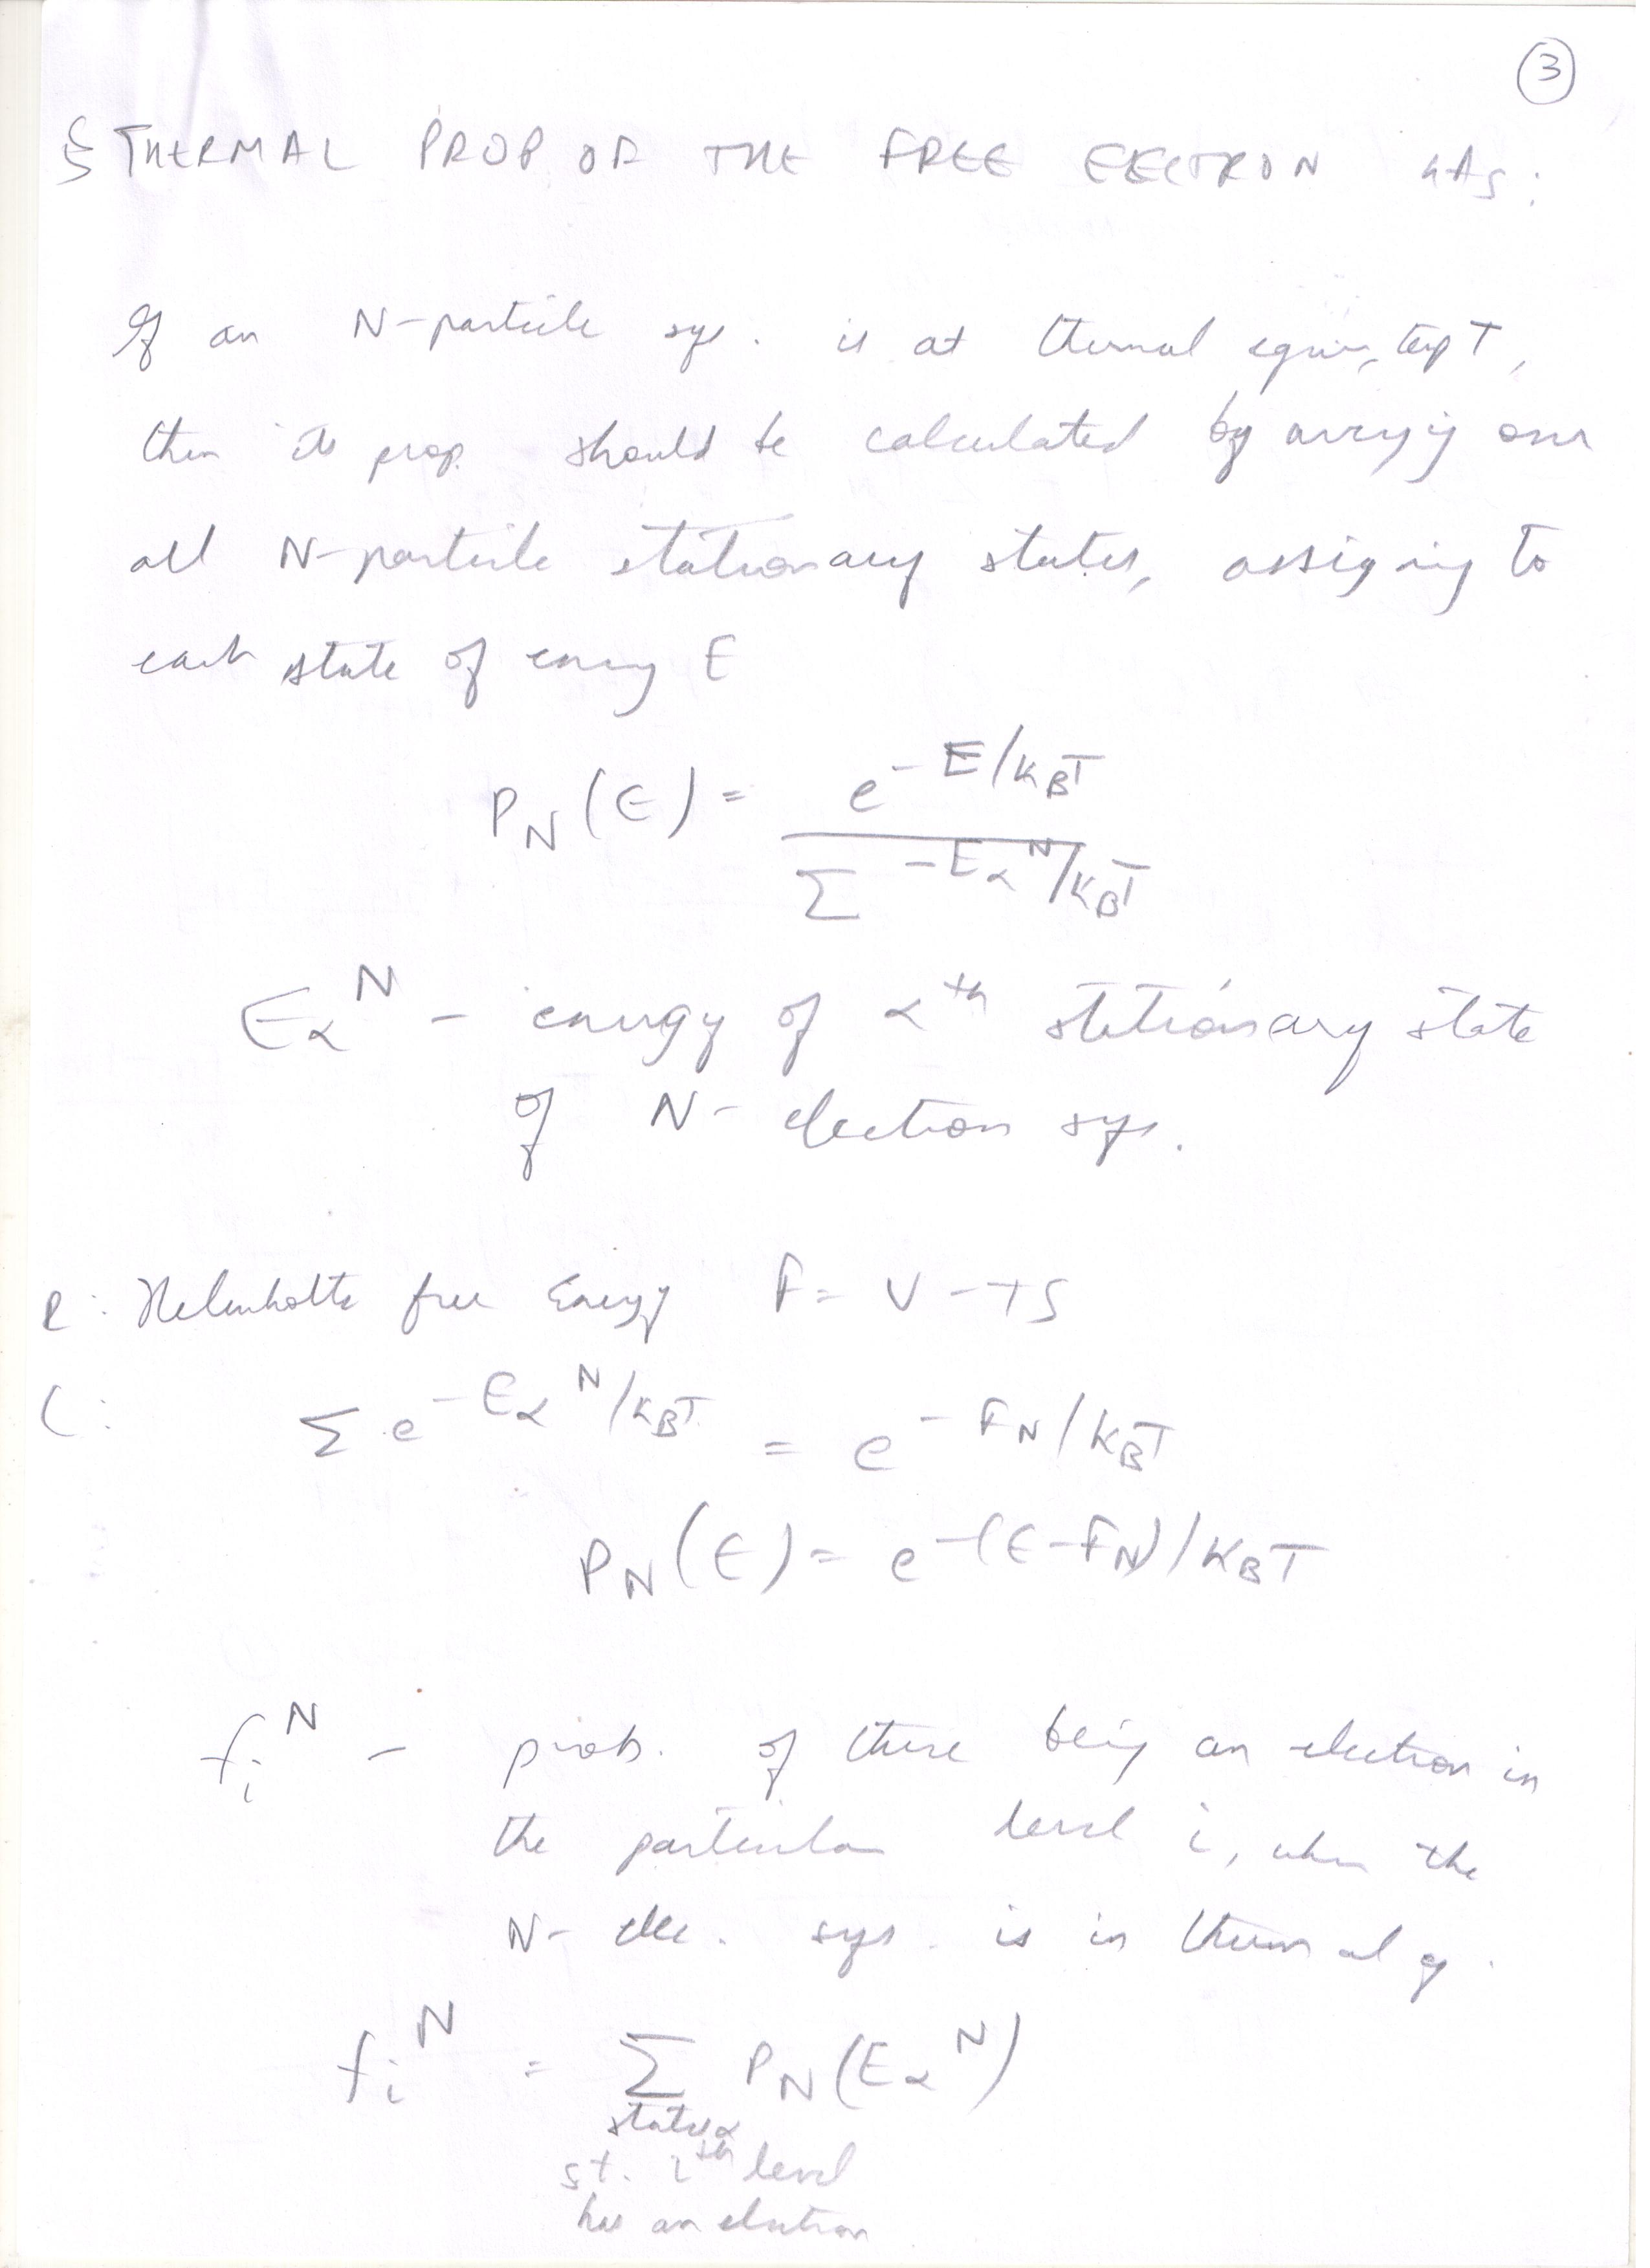 ③
§ THERMAL PROP OF THE FREE EECTRON GAS:
If an N-particle sys. is at thermal equiv, temp T,
then its prop. should be calculated by averagig over
all N-particle stationary states, assigning to
each state of energy E
P_N(E) = e^{-E/k_BT} / Σ^{-E_α^N/k_BT}
E_α^N - energy of α^th stationary state
of N-electron sys.
R: Helmholtz free Energy F = U - TS
C:
Σ e^{-E_α^N/k_BT} = e^{-F_N/k_BT}
P_N(E) = e^{-(E-F_N)/k_BT}
f_i^N - prob. of there being an electron in
the particular level i, when the
N-elec. sys. is in thermal eq.
f_i^N = Σ P_N(E_α^N)
states α
st. i^th level
has an electron